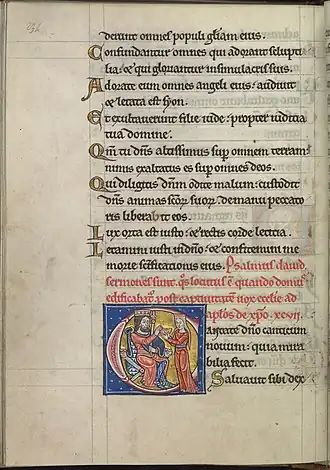 derunt omnes populi gliam eius.
Confundantur omnes qui adorant sculpti
lia: & qui gloriantur in simulacris suis.
Adorate eum omnes angeli eius: audiuit
& letata est syon.
Et exultauerunt filie iude: propter iudicia
tua domine.
Qm tu dns altissimus sup omnem terram
nimis exaltatus es sup omnes deos.
Qui diligitis dnm odite malum: custodit
dns animas scor suor de manu peccato
ris liberabit eos.
Lux orta est iusto: & rectis corde leticia.
Letamini iusti in dno: & confitemini me
morie scificationis eius. Psalmus dauid
sermones sunt. qs locutus e quando domus
edificabat post captiuitatem uox ecclie ad
aplos de xpo. xcvii.
Cantate dno canticum
nouum: quia mira
bilia fecit.
Saluauit sibi dex